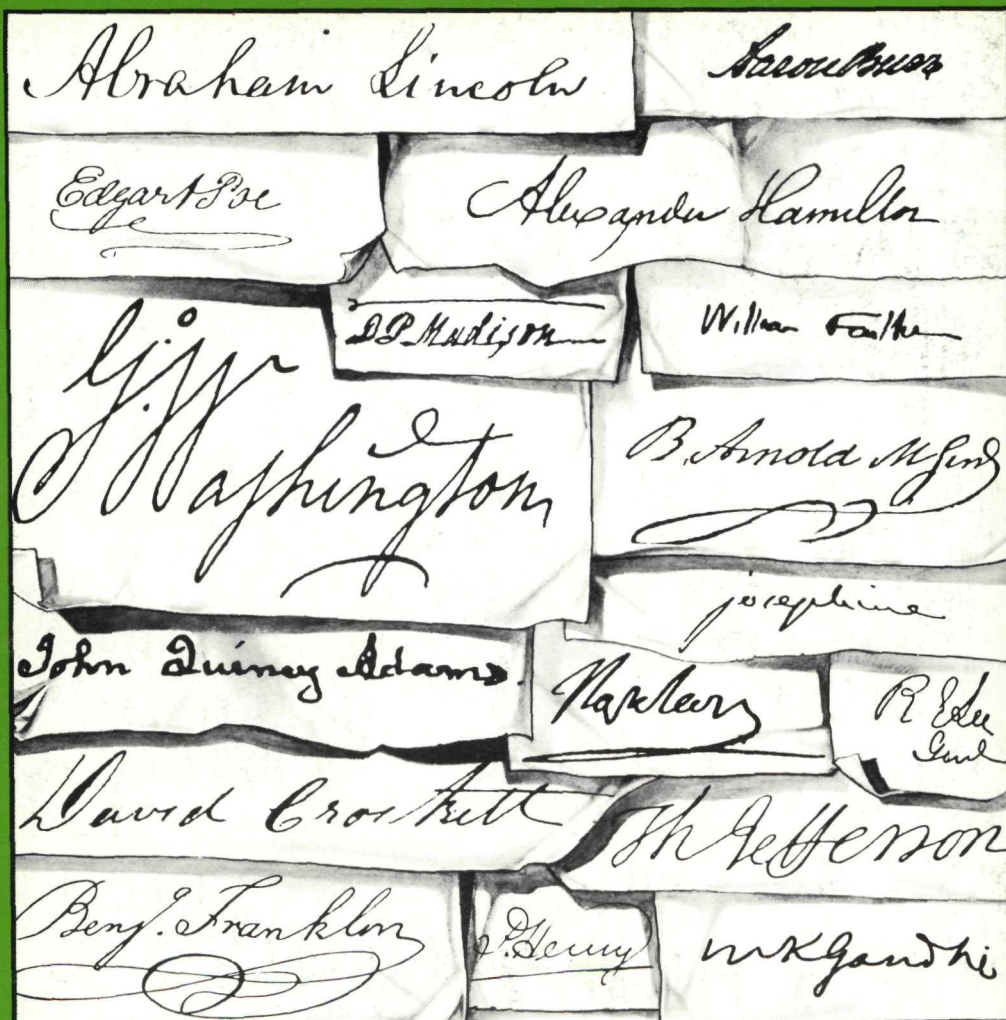 Abraham Lincoln
Aaron Burr
Edgar A Poe
Alexander Hamilton
D. P. Madison
William Faulkner
G. Washington
B. Arnold M Genl
josephine
John Quincy Adams.
Napoleon
R E Lee
Genl
David Crockett
Th Jefferson
Benj. Franklin
P. Henry
MKGandhi